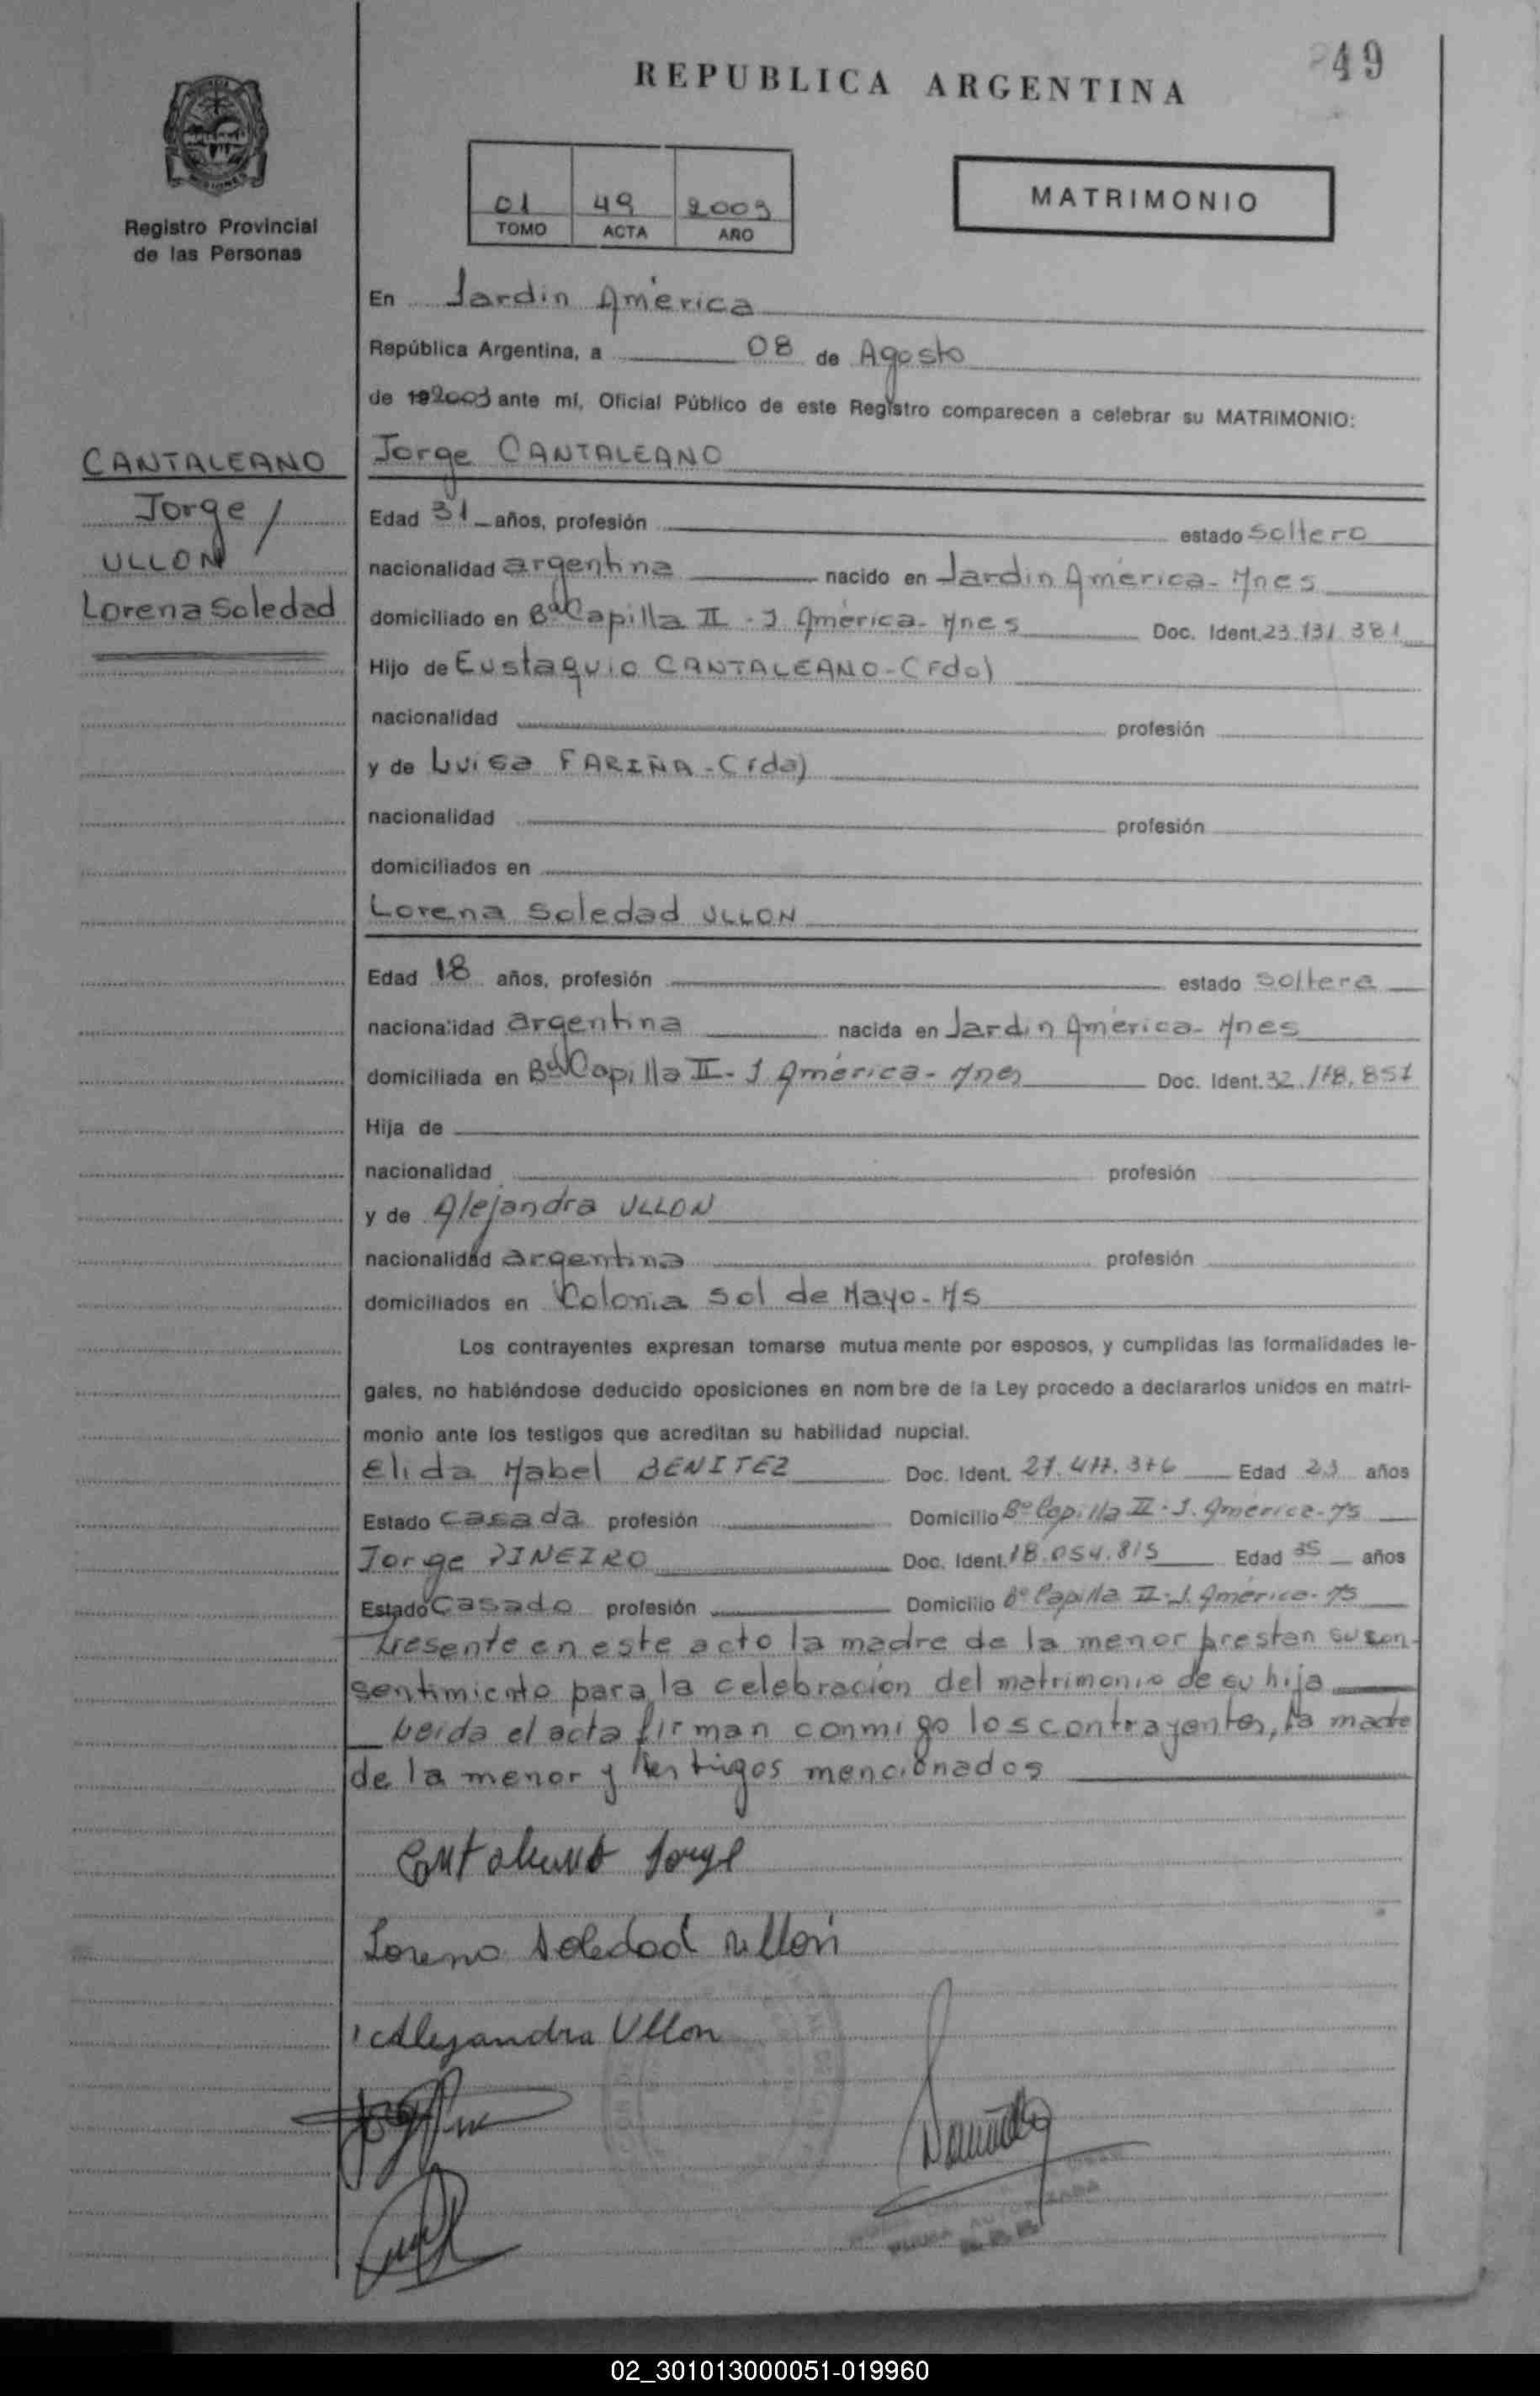 49
REPUBLICA ARGENTINA
MATRIMONIO
Registro Provincial
de las Personas
01 49 2003
TOMO ACTA AÑO
En Jardin América
República Argentina, a 08 de Agosto
de 192003 ante mí, Oficial Público de este Registro comparecen a celebrar su MATRIMONIO:
CANTALEANO
Jorge /
ULLON
Lorena Soledad
Jorge CANTALEANO
Edad 31 años, profesión estado soltero
nacionalidad argentina nacido en Jardin América - Mnes
domiciliado en Bº Capilla II - J. América - Mnes Doc. Ident. 23.131.381
Hijo de Eustaquio CANTALEANO - (fdo)
nacionalidad profesión
y de Luisa FARIÑA - (fda)
nacionalidad profesión
domiciliados en
Lorena Soledad ULLON
Edad 18 años, profesión estado soltera
nacionalidad argentina nacida en Jardin América - Mnes
domiciliada en Bº Capilla II - J. América - Mnes Doc. Ident. 32.118.851
Hija de
nacionalidad profesión
y de Alejandra ULLON
nacionalidad argentina profesión
domiciliados en Colonia Sol de Mayo - Ms
Los contrayentes expresan tomarse mutua mente por esposos, y cumplidas las formalidades le-
gales, no habiéndose deducido oposiciones en nom bre de la Ley procedo a declararlos unidos en matri-
monio ante los testigos que acreditan su habilidad nupcial.
Elida Mabel BENITEZ Doc. Ident. 27.477.376 Edad 23 años
Estado casada profesión Domicilio Bº Capilla II - J. América - Ms
Jorge PINEIRO Doc. Ident. 18.054.815 Edad 35 años
Estado casado profesión Domicilio Bº Capilla II - J. América - Ms
Presente en este acto la madre de la menor prestan su con-
sentimiento para la celebración del matrimonio de su hija
Leida el acta firman conmigo los contrayentes, la madre
de la menor y testigos mencionados
Cantaleano Jorge
Lorena Soledad Ullon
Alejandra Ullon
FIRMA AUTORIZADA
02_301013000051-019960